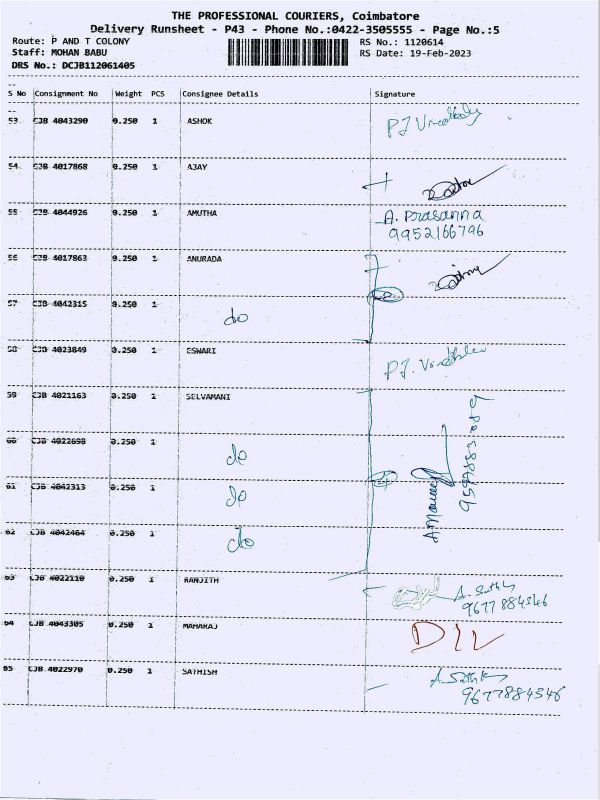 THE PROFESSIONAL COURIERS, Coimbatore
Delivery Runsheet - P43 - Phone No.:0422-3505555 - Page No.:5
Route: P AND T COLONY RS No.: 1120614
Staff: MOHAN BABU RS Date: 19-Feb-2023
DRS No.: DCJB112061405
S No Consignment No Weight PCS Consignee Details Signature
53 CJB 4043290 0.250 1 ASHOK
54 CJB 4017868 0.250 1 AJAY
55 CJB 4044926 0.250 1 AMUTHA A. Prasanna
9952166796
56 CJB 4017863 0.250 1 ANURADA
57 CJB 4042315 0.250 1 do
58 CJB 4023849 0.250 1 ESWARI
59 CJB 4021163 0.250 1 SELVAMANI
60 CJB 4022698 0.250 1 do
61 CJB 4042313 0.250 1 do
62 CJB 4042464 0.250 1 do
63 CJB 4022110 0.250 1 RANJITH
9677884546
64 CJB 4043305 0.250 1 MAHARAJ
65 CJB 4022970 0.250 1 SATHISH
9677884546